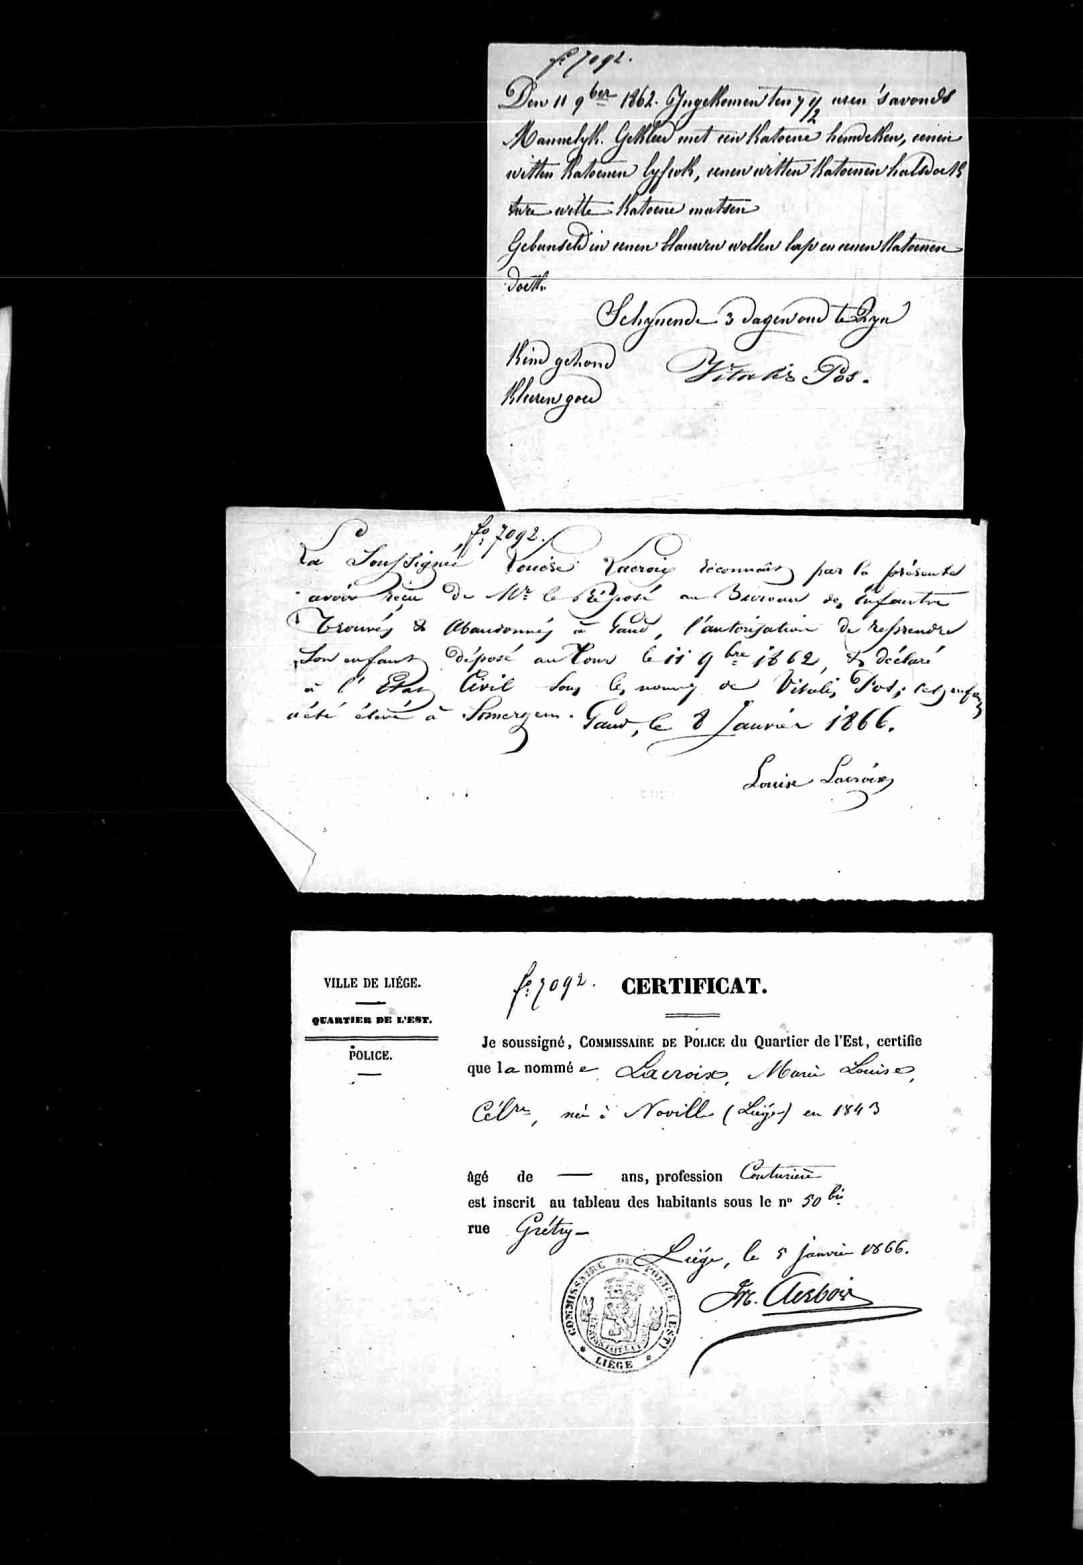 f° 7092.
Den 11 9ber 1862. Ingekomen ten 7 1/2 uren 's avonds
Mannelyk. Gekleed met een katoene hemdeken, eenen
witten katoenen lyfrok, eenen witten katoenen halsdoek
twee witte katoene mutsen
Gebunseld in eenen blauwen wollen lap en eenen katoenen
doek.
Schynende 3 dagen oud te Zyn
Kind gezond
Vitalis Pos.
Kleeren goed
f° 7092.
La Soussignée Louise Lacroix reconnait par la présente
avoir reçu de Mr le Préposé au Bureau des Enfants
Trouvés & Abandonnés à Gand, l'autorisation de reprendre
son enfant déposé au Tour le 11 9bre 1862, & déclaré
à l'Etat Civil sous les noms de Vitalis Pos; cet enfant
a été élevé à Somergem. Gand, le 8 Janvier 1866.
Louise Lacroix
VILLE DE LIÉGE.
QUARTIER DE L'EST.
POLICE.
f° 7092.
CERTIFICAT.
Je soussigné, COMMISSAIRE DE POLICE du Quartier de l'Est, certifie
que la nommée Lacroix, Marie Louise,
Célre, née à Noville (Liége) en 1843
âgé de — ans, profession Couturière
est inscrit au tableau des habitants sous le n° 50 bis
rue Grétry
Liége, le 5 janvier 1866.
COMMISSAIRE DE POLICE (EST)
LIÉGE